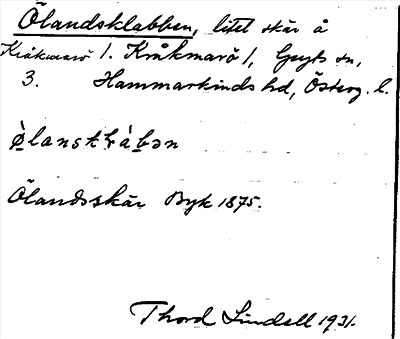 Ölandsklabben, litet skär å
Kråkmarö 1. Kråkmarö 1, Gryts sn,
3. Hammarkinds hd, Österg. l.
Ölandsskär Byk 1875.
Thord Lindell 1931.